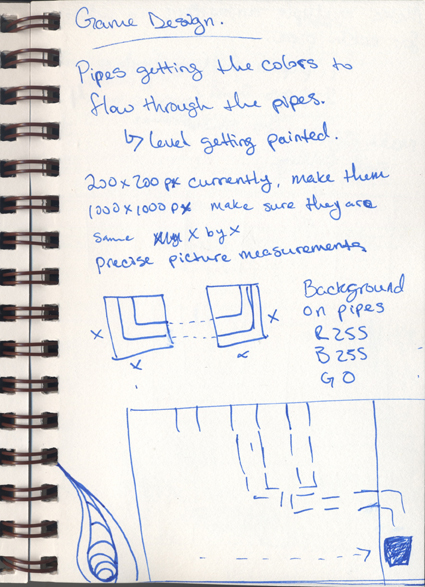 Game Design.
Pipes getting the colors to
flow through the pipes.
↳ level getting painted.
200x200 px currently, make them
1000x1000 px make sure they are
same x by x
precise picture measurements
x
x
x
x
Background
on pipes
R255
B255
G0